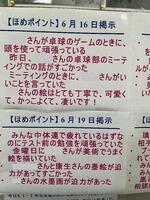 【ほめポイント】６月１６日掲示
さんが卓球のゲームのときに、
頭を使って頑張っている
昨日、さんの卓球部のミーティングでの話がすごかった
ミーティングのときに、さんがいいことを言っていた
さんの絵はとても丁寧で、可愛くて、かっこよくて、凄いです！
【ほめポイント】６月１９日掲示
みんな中体連で疲れているはずなのにテスト前の勉強を頑張っていた
金曜日に さんが美術でうまく絵を描いていた
さんと康生さんの墨絵が迫力があってすごかった
さんの水墨画が迫力があった